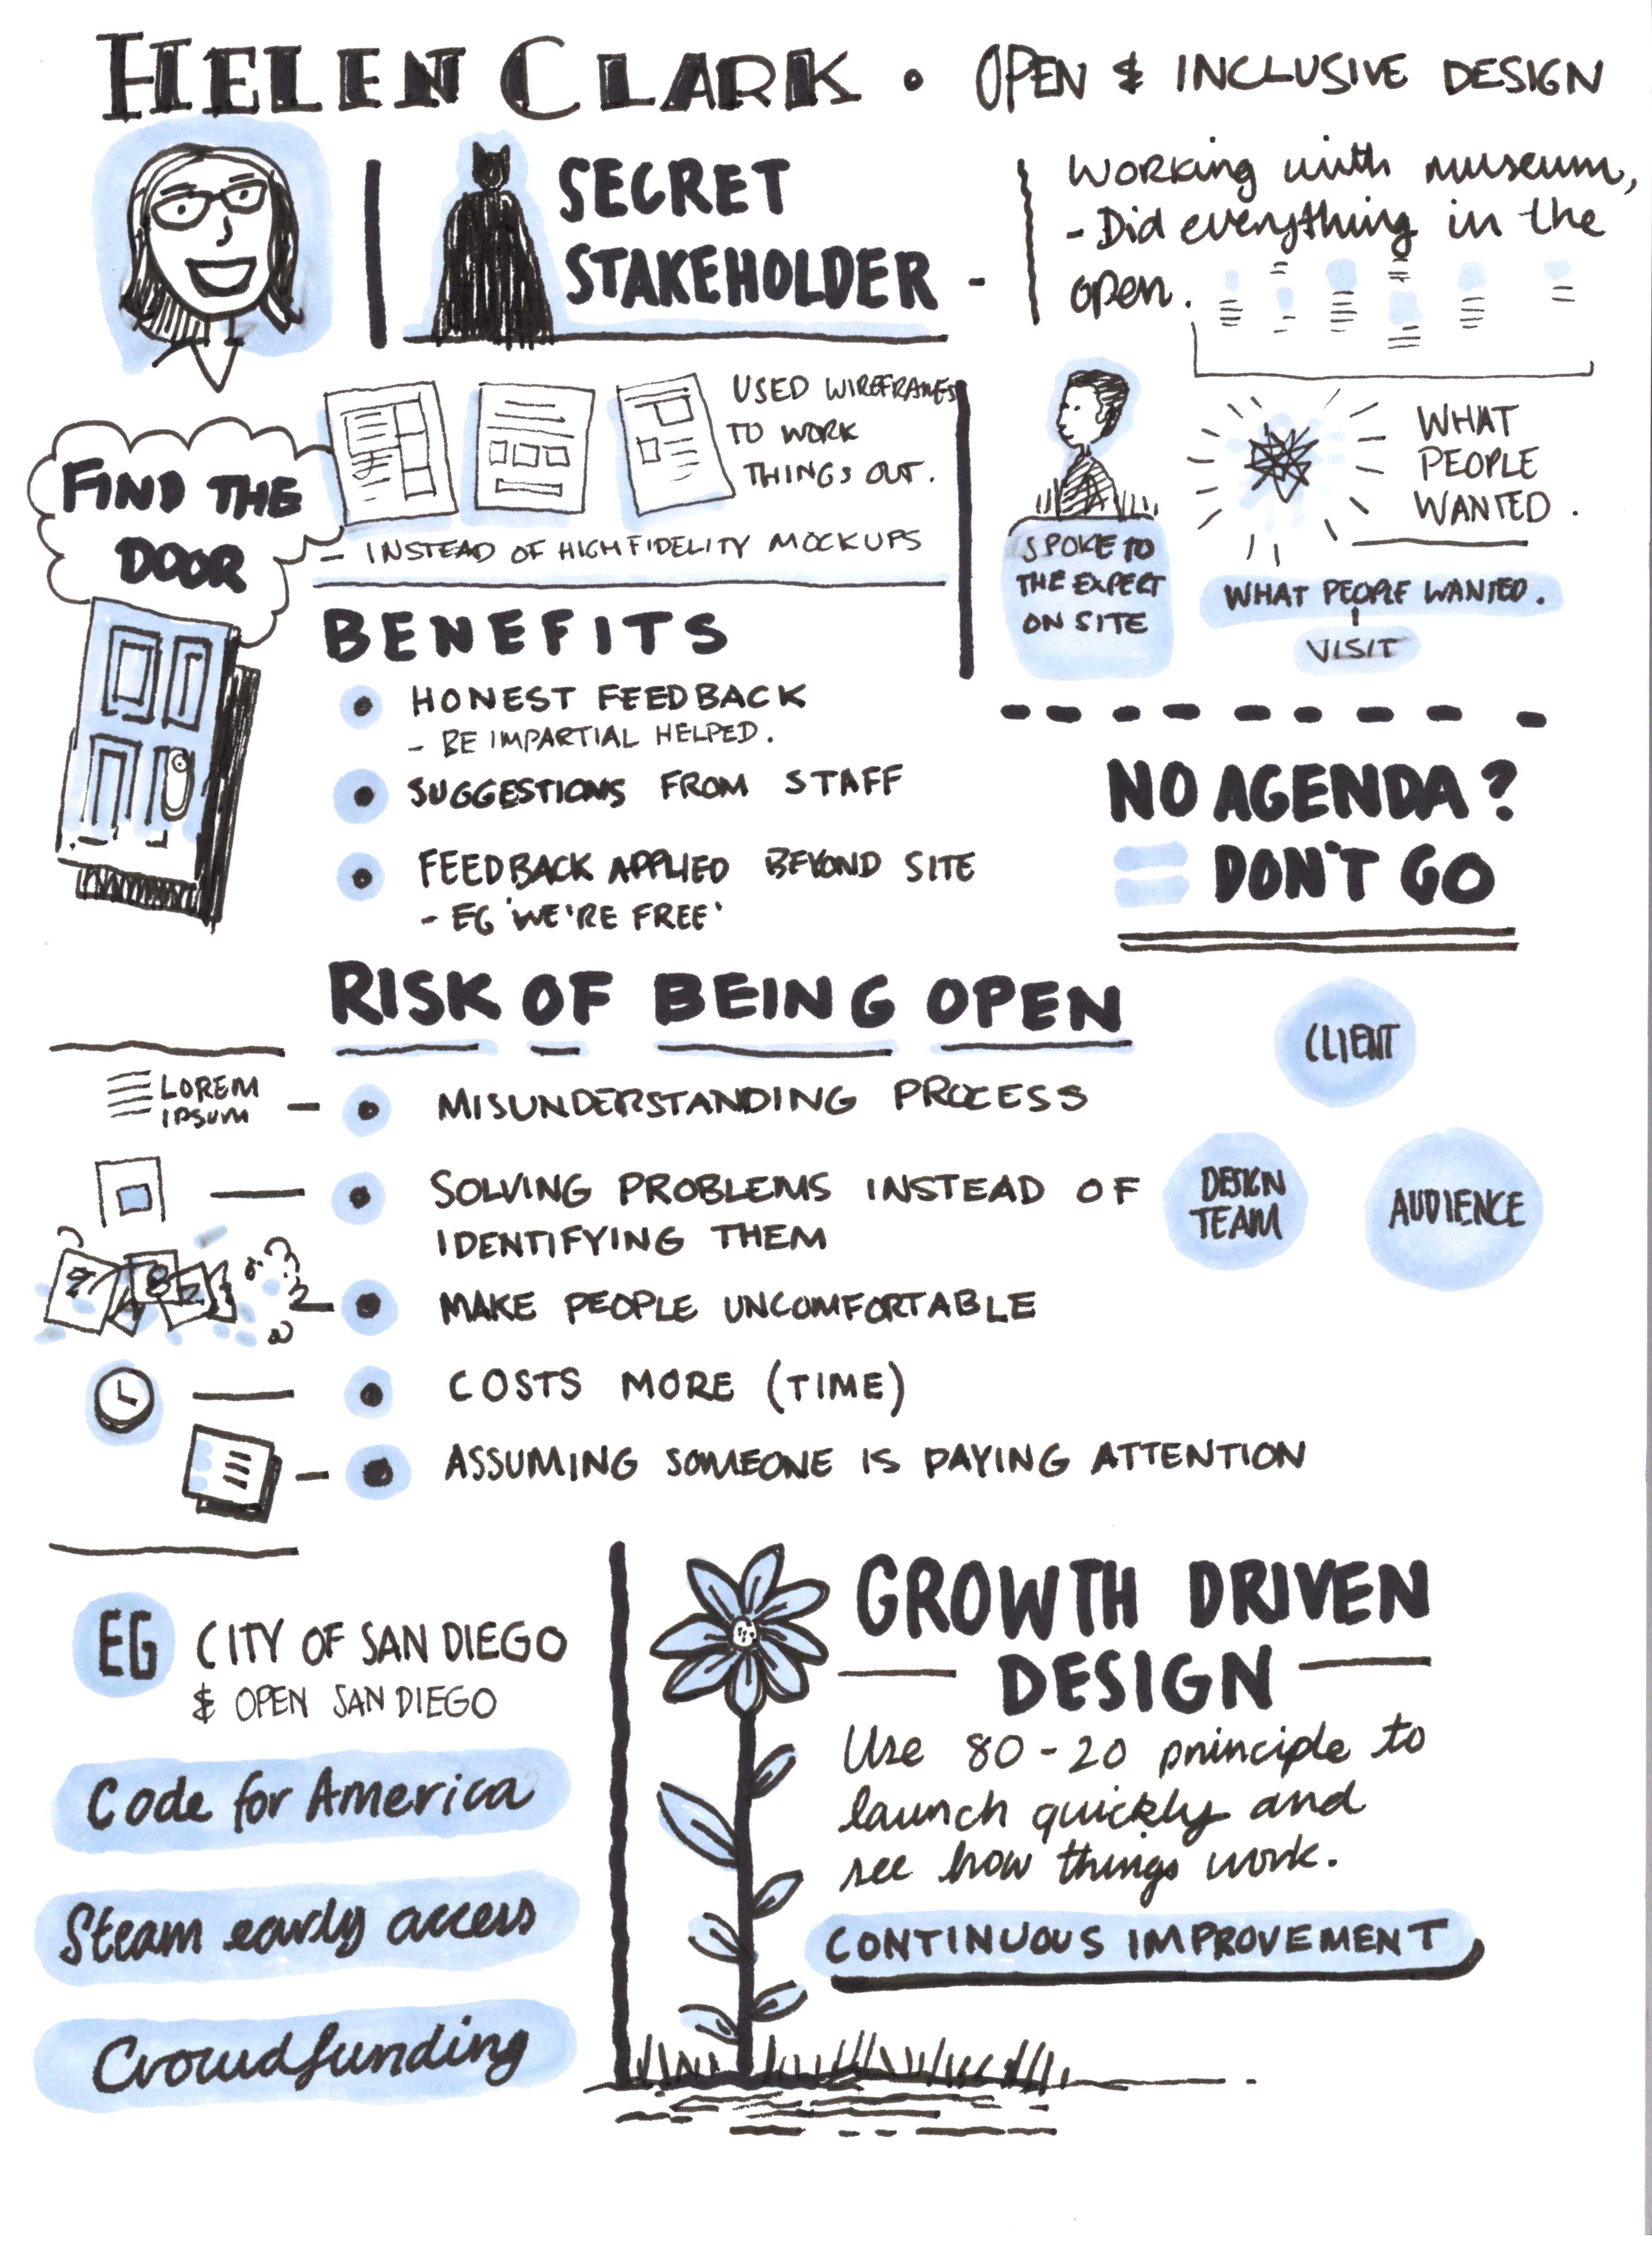 HELEN CLARK • OPEN & INCLUSIVE DESIGN
SECRET
STAKEHOLDER -
Working with museum,
- Did everything in the
open.
USED WIREFRAMES
TO WORK
THINGS OUT.
- INSTEAD OF HIGH FIDELITY MOCKUPS
FIND THE
DOOR
SPOKE TO
THE EXPERT
ON SITE
WHAT
PEOPLE
WANTED.
WHAT PEOPLE WANTED.
VISIT
BENEFITS
• HONEST FEEDBACK
- BE IMPARTIAL HELPED.
• SUGGESTIONS FROM STAFF
• FEEDBACK APPLIED BEYOND SITE
- EG 'WE'RE FREE'
NO AGENDA?
= DON'T GO
RISK OF BEING OPEN
LOREM
IPSUM
- • MISUNDERSTANDING PROCESS
- • SOLVING PROBLEMS INSTEAD OF
IDENTIFYING THEM
- • MAKE PEOPLE UNCOMFORTABLE
- • COSTS MORE (TIME)
- • ASSUMING SOMEONE IS PAYING ATTENTION
CLIENT
DESIGN
TEAM
AUDIENCE
EG CITY OF SAN DIEGO
& OPEN SAN DIEGO
Code for America
Steam early access
Crowdfunding
GROWTH DRIVEN
DESIGN
Use 80-20 principle to
launch quickly and
see how things work.
CONTINUOUS IMPROVEMENT